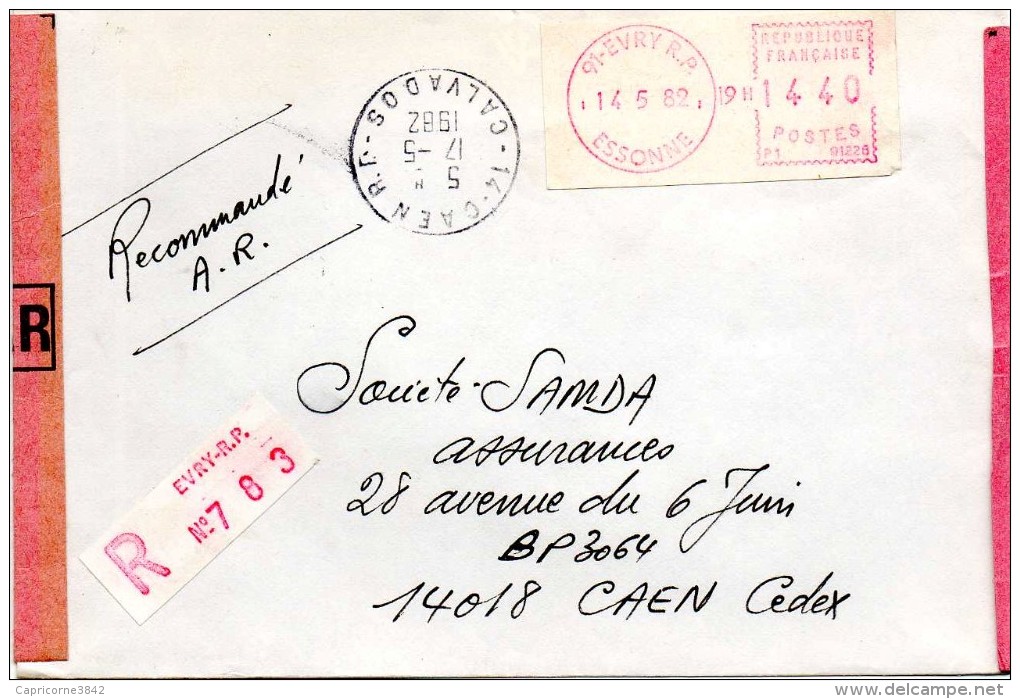 91-EVRY R.P.
14 5 82
ESSONNE
19 H
REPUBLIQUE
FRANÇAISE
1440
POSTES
P1 91226
14-CAEN R.P.-
CALVADOS
5 H
17-5
1982
Recommandé
A.R.
R
Société SAMDA
assurances
28 avenue du 6 Juin
BP3064
14018 CAEN Cédex
EVRY-R.P.
R N° 783
Capricorne3842
delcampe.net